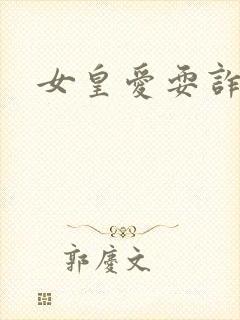 女皇愛耍詐
郭慶文